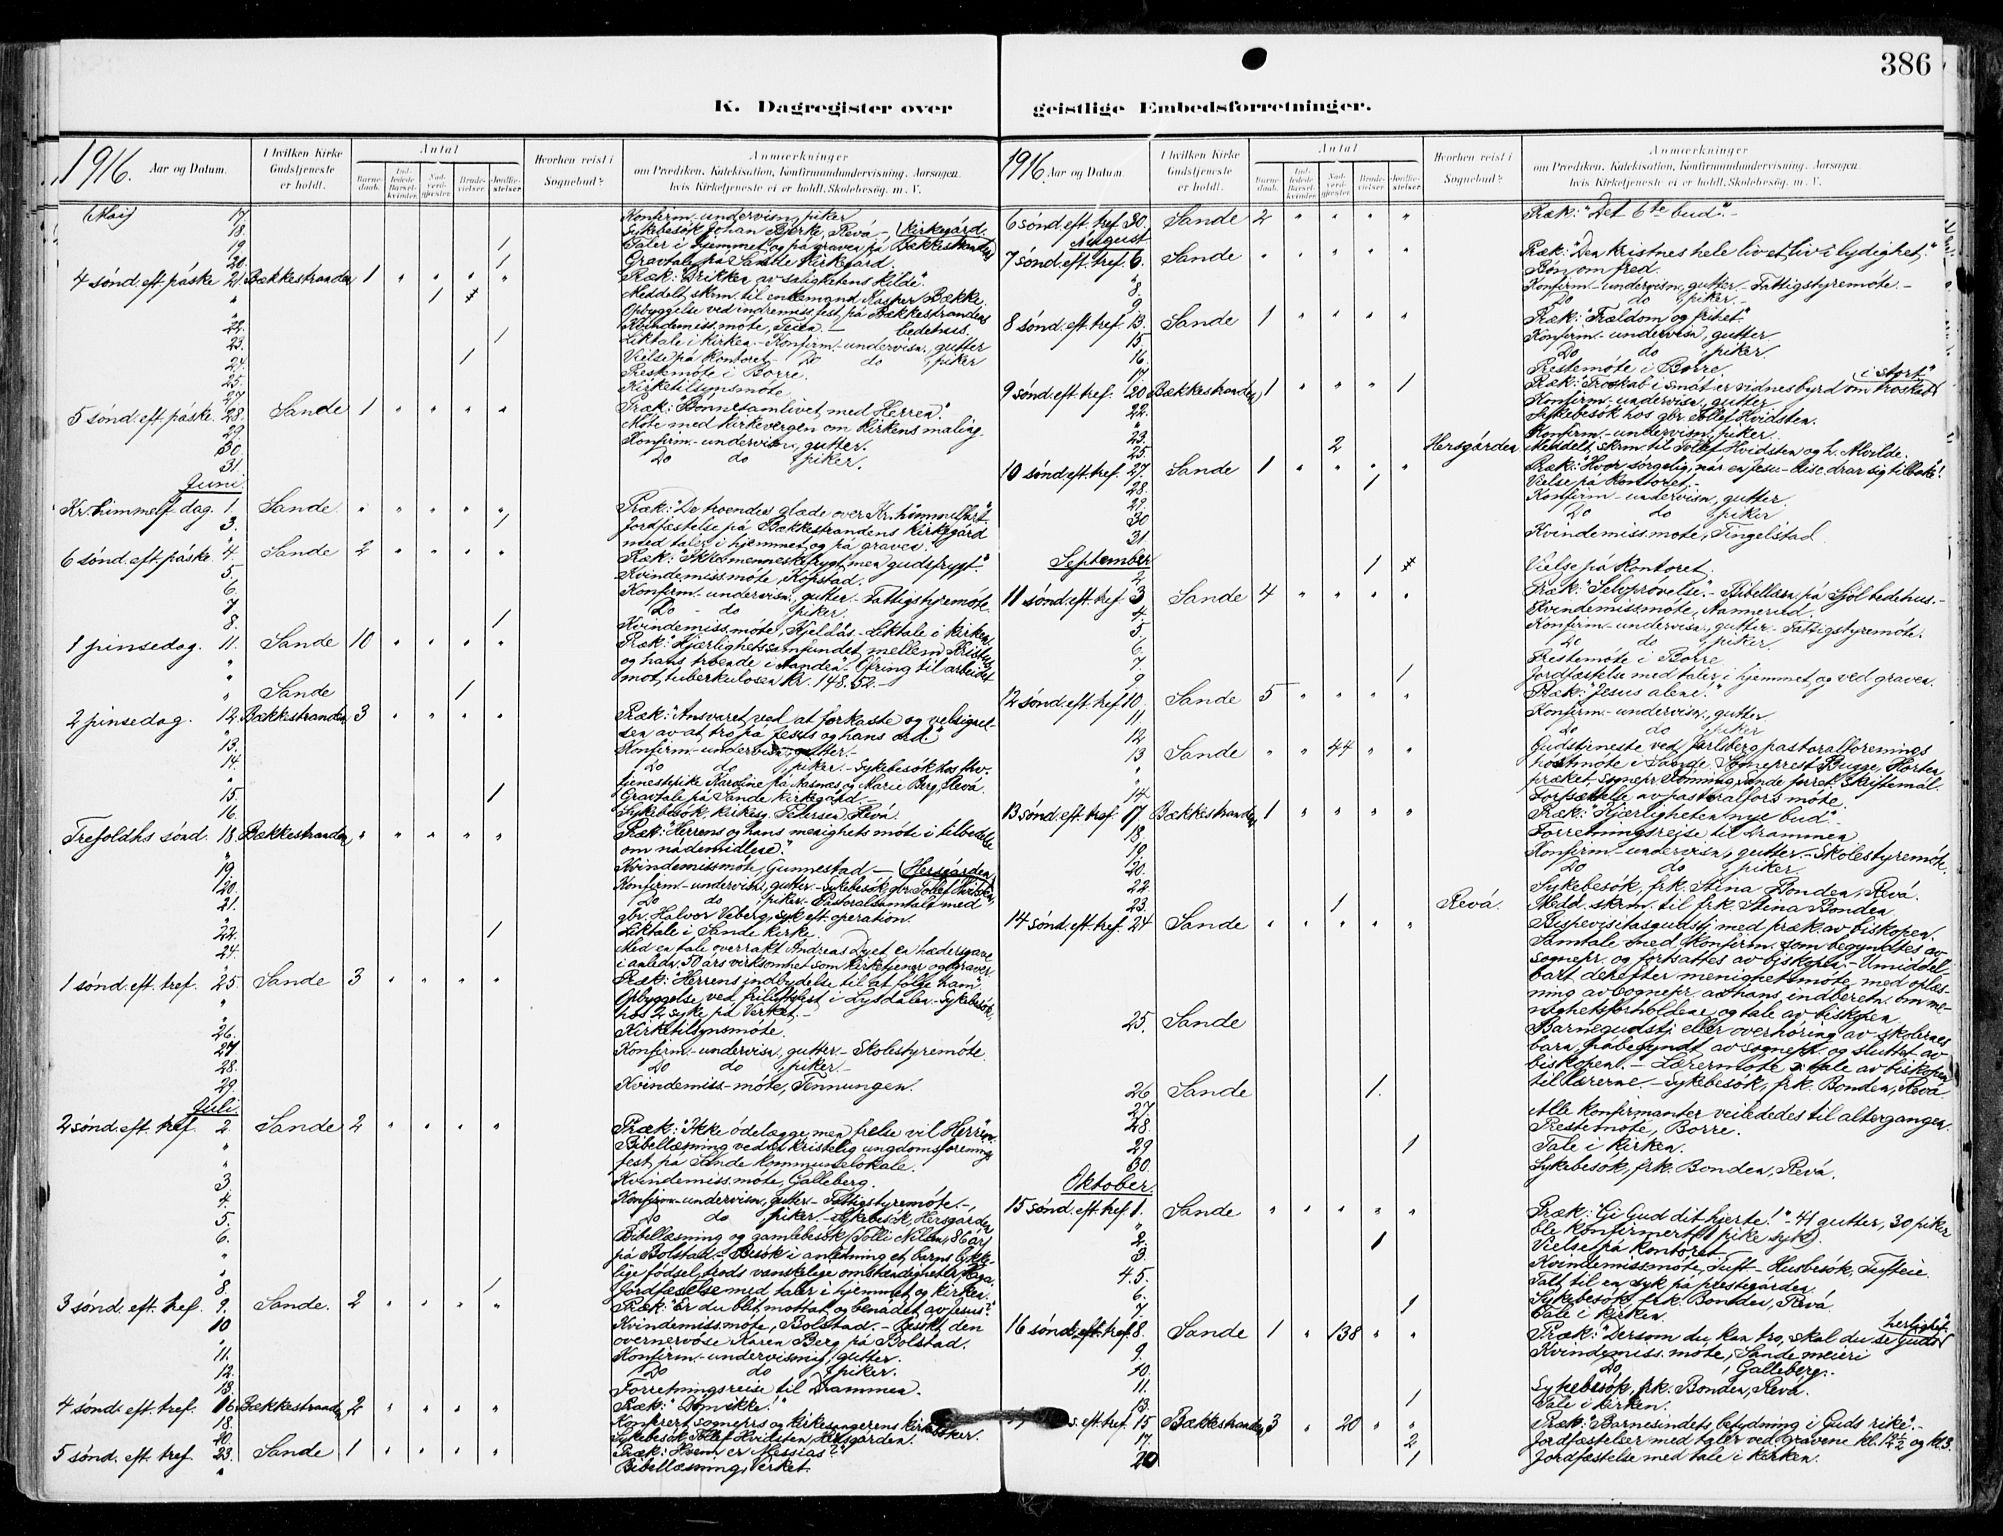 386
K. Dagregister over geistlige Embedsforretninger.
1916. Aar og Datum. I hvilken Kirke Gudstjeneste er holdt. Antal Barne- daab. Ind- ledede Barsel- kvinder. Nad- verd- gjester. Brude- vielser. Jordfæ- stelser. Hvorhen reist i Sognebud? Anmerkninger om Prædiken, Katekisation, Konfirmandundervisning, Aarsagen, hvis Kirketjeneste ei er holdt, Skolebesøg, m. V.
(Mai) 17. Konfirm.-undervisn, piker
18. Sykebesök Johan Bjerk, Revå. - Kirkegård.
19. 1 Taler i hjemmet og på graven på Bækkestranden
20. 1 Gravtale på Sande Kirkegård.
4 sönd. eft. påske 21. Bækkestranden 1 " " " " Præk: "Drikken av salighetens kilde".
" 1 Meddelt skrm. til enkemand Kasper Bække.
Opbyggelse ved indremiss.fest på Bækkestrandens
22. Kvindemiss.möte, Teien. - bedehus.
23. 1 Liktale i kirken. - Konfirm.-undervisn., gutter
24. 1 Vielse på kontoret - Do do piker
25. Prestemöte i Borre.
27. Kirketilsynsmöte.
5 sönd. eft. påske. 28. Sande 1 " " " " Præk: "Bönnesamlivet med Herren".
29. Möte med kirkevergen om kirkens maling.
30. Konfirm.-undervisn, gutter.
31. Do do piker.
Juni.
Kr. himmelf. dag. 1. Sande. " " " " " Præk: "De troendes glæde over Kr. himmelfart".
3. 1 Jordfæstelse på Bækkestrandens kirkegård
med taler i hjemmet og på graven.
6 sönd. eft. påske 4. Sande 2 " " " " Præk: "Ikke menneskefrygt, men gudsfrygt".
5. Kvindemiss.möte, Kopstad.
6. Konfirm.-undervisn., gutter. - Fattigstyremöte.
7. Do - do piker.
8. 1 Kvindemiss.möte, Kjeldås. - Liktale i kirken.
1 pinsedag. 11. Sande 10 " " " " Præk: "Kjærlighetssamfundet mellem Kristus
" og hans troende i Aanden". Ofring til arbeidet
" mot tuberkulosen kr. 148.52. -
" Sande 1
2 pinsedag. 12. Bækkestranden 3 " " " " Præk: "Ansvaret ved at forkaste og velsignel-
" sen av at tro på Jesus og hans ord."
13. Konfirm.-undervisn. gutter. -
14. Do do piker. - Sykebesök hos
" tjenestepike Karoline på Aasnes og Marie Berg, Revå.
15. 1 Gravtale på Sande kirkegård. -
16. Sykebesök, kirkesg. Petersen, Revå.
Trefoldhs sönd. 18 Bækkestranden " " " " " Præk: "Herrens og hans menighets möte i tilbedelse
" om nådemidlene."
19. Kvindemissmöte, Gunnestad - Hersgården
20. Konfirm.-undervisn, gutter. - Sykebesök, gbr. Tollef Hvidsten,
21. Do do piker. - Pastoralsamtalt med
" gbr. Halvor Veberg, syk eft. operation.
22. 1 Liktale i Sande kirke.
24. Med en tale overrakt Andreas Dyet en hædersgave
" i anledn. 50 års virksomhet som kirketjener og graver
1 sönd. eft. tref. 25. Sande 3 " " " " Præk: "Herrens indbydelse til at fölge ham.
" Opbyggelse ved friluftsfest i Lysdalen. - Sykebesök,
" hos 2 syke på Verket. -
26. Kirketilsynsmöte.
27. Konfirm.-undervisn, gutter. - Skolestyremöte.
28. Do do piker.
29. Kvindemiss-möte, Tennungen.
Juli.
2 sönd. eft. tref. 2. Sande 2 " " " " Præk: "Ikke ödelægge, men frelse vil Herren".
" Bibellæsning ved et kristelig ungdomsforenings
" fest på Sande kommunelokale.
3. Kvindemiss.möte, Galleberg.
4. Konfirm.-undervisn, gutter. - Fattigstyremöte. -,
5. Do do piker. - Sykebesök, Hersgården
6. Bibellæsning og gamlebesök (Tolli Nilsen, 86 år)
" på Bolstad. - Besök i anledning et barns lykke-
" lige födsel, trods vanskelige omstændigheter, Haga.
8. 1 Jordfæstelse med taler i hjemmet og kirken.
3 sönd. eft. tref. 9. Sande. 2 " " " " Præk: "Er du blit mottat og benådet av Jesus?"
10 Kvindemiss.möte, Bolstad. - Besökt den
" overnervöse Karen Berg på Bolstad.
11. Konfirm.-undervisning, gutter.
12. Do do piker.
13. Forretningsreise til Drammen.
4 sönd. eft. tref. 16. Bækkestranden 2 " " " " Præk: "Döm ikke!"
18. Konfrert sogneprs og kirkesangerens kirkeböker.
20. Sykebesök Tollef Hvidsten, Hersgården.
5 sönd. eft. tref. 23. Sande 1 " " " " Præk: "Hvem er Messias?"
" Bibellæsning, Verket.
1916. Aar og Datum. I hvilken Kirke Gudstjeneste er holdt. Antal Barne- daab. Ind- ledede Barsel- kvinder. Nad- verd- gjester. Brude- vielser. Jordfæ- stelser. Hvorhen reist i Sognebud? Anmærkninger om Prædiken, Katekisation, Konfirmandundervisning, Aarsagen, hvis Kirketjeneste ei er holdt, Skolebesøg, m. V.
6 sönd. eft. tref. 30. Sande 2 " " " " Præk: "Det 6te bud". -
August
7 sönd. eft. tref. 6. Sande " " " " " Præk: "Den kristnes hele liv et liv i lydighet."
" Bön om fred.
8 Konfirm.-undervisn., gutter. - Fattigstyremöte. -
9. Do do piker. -
8 sönd. eft. tref. 13. Sande 1 " " " " Præk: "Trældom og frihet".
15. Konfirm.-undervisn, gutter
16. Do do piker.
17. Prestemöte i Borre.
9 sönd. eft. tref. 20 Bækkestranden 1 " " " 1 Præk: "Troskab i smat er vidnesbyrd om troskab i stort"
22. Konfirm.-undervisn, gutter
" Sykebesök hos gbr. Tollef Hvidsten.
23. Konfirm.-undervisn, piker.
25. 2 Hersgården Meddelt skrm. til Tollef Hvidsten og h. Alvilde.
10 sönd. eft. tref. 27. Sande 1 " " " " Præk: "Hvor sörgelig, når en Jesu-disc. drar sig tilbake"!
28. 1 Vielse på kontoret. -
29. Konfirm-undervisn, gutter
30 Do do piker
31 Kvindemiss.möte, Tingelstad.
September
2. 1 Vielse på kontoret.
11 sönd. eft. tref. 3 Sande 4 " " " " Præk: "Selvprövelse". - Bibellæsn. på Sjöl bedehus. -
4. Kvindemissmöte, Aannerud.
5. Konfirm.-undervisn., gutter - Fattigstyremöte.
6. Do do piker.
7. Prestemöte i Borre
9. 1 Jordfæstelse med taler i hjemmet og ved graven.
12 sönd. eft. tref. 10. Sande 5 " " " " Præk: "Jesus alene!"
11. Konfirm.-undervisn., gutter
12. Do do piker
13 Sande " " 44 " " Gudstjeneste ved Jarlsberg pastoralforenings
" höstmöte i Sande. Sogneprest Bugge, Horten
" præket, sognepr. Sande forret. Skriftemål.
14. Forsættelse av pastoralfor's möte.
13 sönd. eft. tref. 17. Bækkestranden 1 " " " " Præk: "Kjærligheten nye bud". -
18. Forretningsreise til Drammen
19. Konfirm.-undervisn, gutter. - Skolestyremöte.
20. Do do piker.
22. Sykebesök, frk. Stina Bonden, Revå.
23. 1 Revå. Medd. skrm. til frk. Stina Bonden
14 sönd. eft. tref. 24 Sande " " " " " Bispevisitasgudstj. med præk. av biskopen.
Samtale med konfirm. som begyndtes av
sognepr. og fortsattes av biskopen. - Umiddel-
bart derefter menighetsmöte, med oplæs-
ning av sognepr. av hans indberetn. om me-
nighetsforholdene og tale av biskopen
25. Sande Barnegudstj. eller overhöring av skolernes
barn, påbegyndt av sognepr. og sluttet av
biskopen. - Lærermöte m. tale av biskopen
til lærerne. - Sykebesök, frk. Bonden, Revå
26. Sande 1.
27. Alle konfirmanter veilededes til altergangen.
28. Prestemöte, Borre.
29 1 Tale i kirken.
30. Sykebesök, frk. Bonden, Revå.
Oktober.
15 sönd. eft. tref. 1. Sande " " " " " Præk: "Gi Gud dit hjerte!" - 41 gutter, 30 piker
" ble konfirmert (1 pike syk).
2. 1 Vielse på kontoret.
3. Kvindemissmöte, Tuft. - Husbesök, Tufteie.
4. 5. Talt til en syk på prestegården.
6. Sykebesök, frk. Bonden, Revå.
7. 1 Tale i kirken.
16 sönd. eft. tref. 8. Sande 1 " 138 " " Præk: "Dersom du kan tro, skal du se Guds herlighet".
9. Kvindemiss.möte, Sande meieri
10. Do , Galleberg. -
11. Sykebesök, frk. Bonden, Revå.
13. 1 Tale i kirken.
s. eft. tref. 15 Bækkestranden 3 " 20 " " Præk: "Barnesindets betydning i Guds rike". -
17. 2 Jordfæstelser med taler ved gravene kl. 12½ og kl. 3.
20 1 Jordfæstelse med tale i kirken.